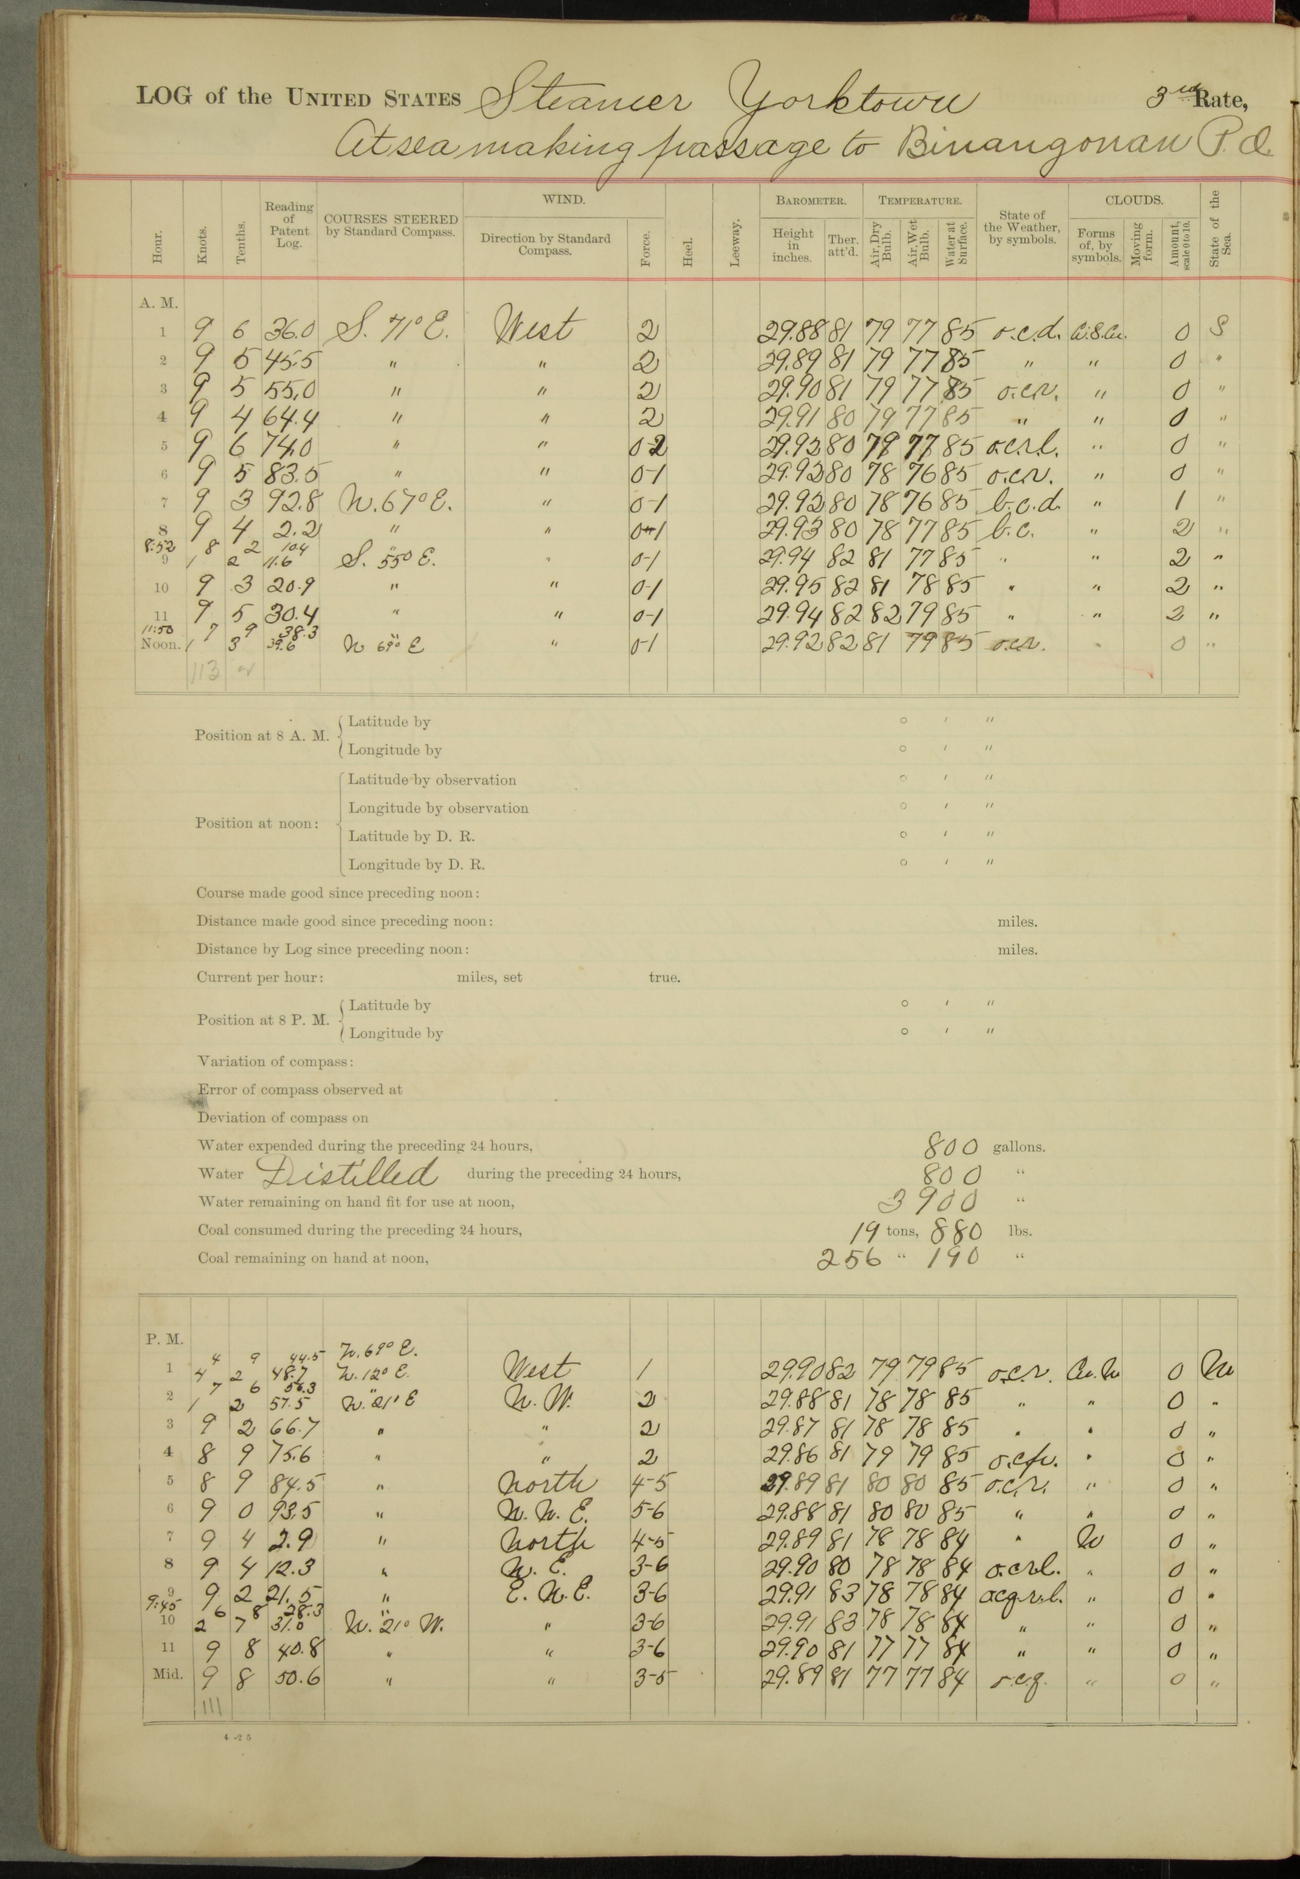 LOG of the UNITED STATES Steamer Yorktown 3rd Rate,
At sea making passage to Binangonan P.I.
Hour. Knots. Tenths. Reading of Patent Log. COURSES STEERED by Standard Compass. WIND. Direction by Standard Compass. Force. Heel. Leeway. BAROMETER. Height in inches. Ther. att'd. TEMPERATURE. Air, Dry Bulb. Air, Wet Bulb. Water at Surface. State of the Weather, by symbols. CLOUDS. Forms of, by symbols. Moving form. Amount, scale 0 to 10. State of the Sea.
A. M.
1 9 6 36.0 S. 71° E. West 2 29.88 81 79 77 85 o.c.d. Ci.S.Cu. 0 S
2 9 5 45.5 " " 2 29.89 81 79 77 85 " " 0 "
3 9 5 55.0 " " 2 29.90 81 79 77 85 o.c.r. " 0 "
4 9 4 64.4 " " 2 29.91 80 79 77 85 " " 0 "
5 9 6 74.0 " " 0-2 29.92 80 79 77 85 o.c.r.l. " 0 "
6 9 5 83.5 " " 0-1 29.92 80 78 76 85 o.c.r. " 0 "
7 9 3 92.8 N. 67° E. " 0-1 29.92 80 78 76 85 b.c.d. " 1 "
8 9 4 2.2 " " 0-1 29.93 80 78 77 85 b.c. " 2 "
8:52 8 2 10.4 "
9 1 2 11.6 S. 55° E. " 0-1 29.94 82 81 77 85 " " 2 "
10 9 3 20.9 " " 0-1 29.95 82 81 78 85 " " 2 "
11 9 5 30.4 " " 0-1 29.94 82 82 79 85 " " 2 "
11:50 7 9 38.3 "
Noon. 1 3 39.6 N 69° E " 0-1 29.92 82 81 79 85 o.c.r. " 0 "
113
Position at 8 A. M. Latitude by ° ' "
Longitude by ° ' "
Position at noon: Latitude by observation ° ' "
Longitude by observation ° ' "
Latitude by D. R. ° ' "
Longitude by D. R. ° ' "
Course made good since preceding noon:
Distance made good since preceding noon: miles.
Distance by Log since preceding noon: miles.
Current per hour: miles, set true.
Position at 8 P. M. Latitude by ° ' "
Longitude by ° ' "
Variation of compass:
Error of compass observed at
Deviation of compass on
Water expended during the preceding 24 hours, 800 gallons.
Water Distilled during the preceding 24 hours, 800 "
Water remaining on hand fit for use at noon, 3900 "
Coal consumed during the preceding 24 hours, 19 tons, 880 lbs.
Coal remaining on hand at noon, 256 " 190 "
P. M.
4 9 44.5 N. 69° E.
1 4 2 48.7 N. 12° E. West 1 29.90 82 79 79 85 o.c.r. Cu.N 0 M
7 6 56.3 "
2 1 2 57.5 N. 21° E N. W. 2 29.88 81 78 78 85 " " 0 "
3 9 2 66.7 " " 2 29.87 81 78 78 85 " " 0 "
4 8 9 75.6 " " 2 29.86 81 79 79 85 " 0 "
5 8 9 84.5 " North 4-5 29.89 81 80 80 85 o.c.r. " 0 "
6 9 0 93.5 " N. N. E. 5-6 29.88 81 80 80 85 " " 0 "
7 9 4 2.9 " North 4-5 29.89 81 78 78 84 " N 0 "
8 9 4 12.3 " N. E. 3-6 29.90 80 78 78 84 o.c.r.l. " 0 "
9 9 2 21.5 " E. N. E. 3-6 29.91 83 78 78 84 o.c.q.r.l. " 0 "
9:45 6 8 28.3 "
10 2 7 31.0 N. 21° W. " 3-6 29.91 83 78 78 84 " " 0 "
11 9 8 40.8 " " 3-6 29.90 81 77 77 84 " " 0 "
Mid. 9 8 50.6 " " 3-5 29.89 81 77 77 84 o.c.q. " 0 "
111
4-25